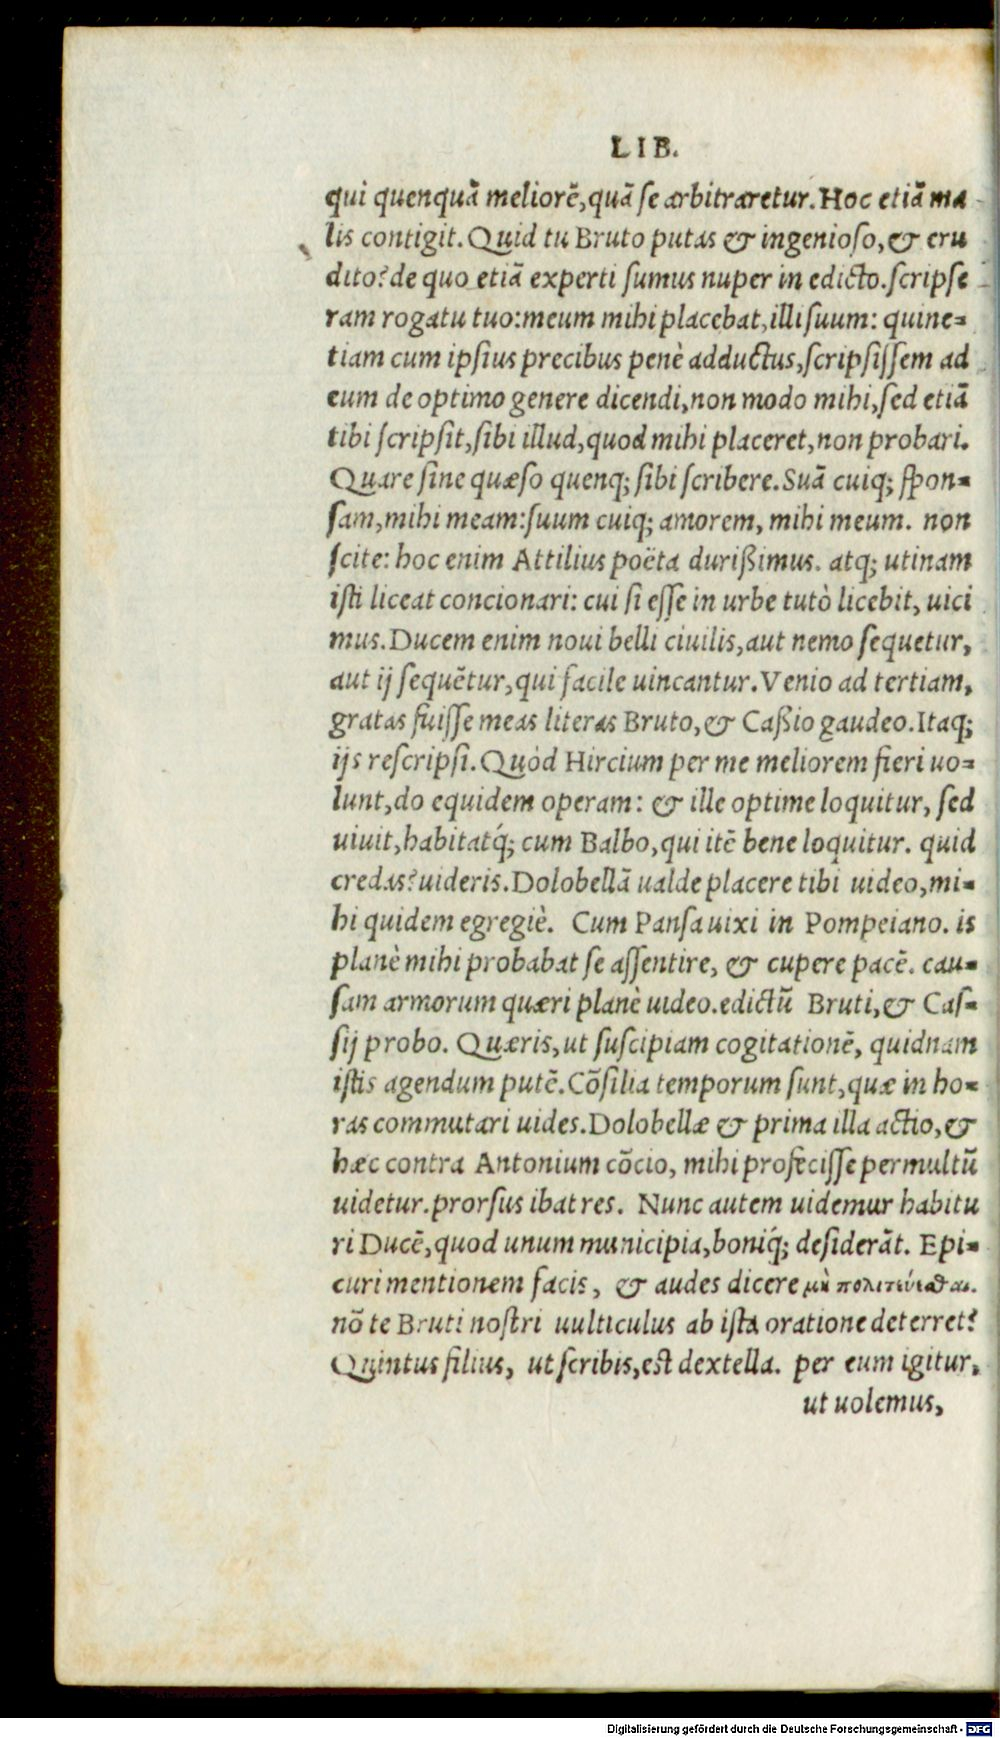 LIB.
qui quenquā meliorē, quā se arbitraretur. Hoc etiā ma
lis contigit. Quid tu Bruto putas & ingenioso, & eru
dito? de quo etiā experti sumus nuper in edicto. scripse
ram rogatu tuo: meum mihi placebat, illi suum: quine=
tiam cum ipsius precibus penè adductus, scripsissem ad
eum de optimo genere dicendi, non modo mihi, sed etiā
tibi scripsit, sibi illud, quod mihi placeret, non probari.
Quare sine quæso quenq; sibi scribere. Suā cuiq; spon=
sam, mihi meam: suum cuiq; amorem, mihi meum. non
scite: hoc enim Attilius poëta durißimus. atq; utinam
isti liceat concionari: cui si esse in urbe tutò licebit, uici
mus. Ducem enim noui belli ciuilis, aut nemo sequetur,
aut ij sequētur, qui facile uincantur. Venio ad tertiam,
gratas fuisse meas literas Bruto, & Caßio gaudeo. Itaq;
ijs rescripsi. Quòd Hircium per me meliorem fieri uo=
lunt, do equidem operam: & ille optime loquitur, sed
uiuit, habitatq́; cum Balbo, qui itē bene loquitur. quid
credas? uideris. Dolobellā ualde placere tibi uideo, mi=
hi quidem egregiè. Cum Pansa uixi in Pompeiano. is
planè mihi probabat se assentire, & cupere pacē. cau=
sam armorum quæri planè uideo. edictū Bruti, & Cas=
sij probo. Quæris, ut suscipiam cogitationē, quidnam
istis agendum putē. Cōsilia temporum sunt, quæ in ho=
ras commutari uides. Dolobellæ & prima illa actio, &
hæc contra Antonium cōcio, mihi profecisse permultū
uidetur. prorsus ibat res. Nunc autem uidemur habitu
ri Ducē, quod unum municipia, boniq́; desiderāt. Epi=
curi mentionem facis, & audes dicere μὴ πολιτεύεσθαι.
nō te Bruti nostri uulticulus ab ista oratione deterret?
Quintus filius, ut scribis, est dextella. per eum igitur,
ut uolemus,
Digitalisierung gefördert durch die Deutsche Forschungsgemeinschaft - DFG